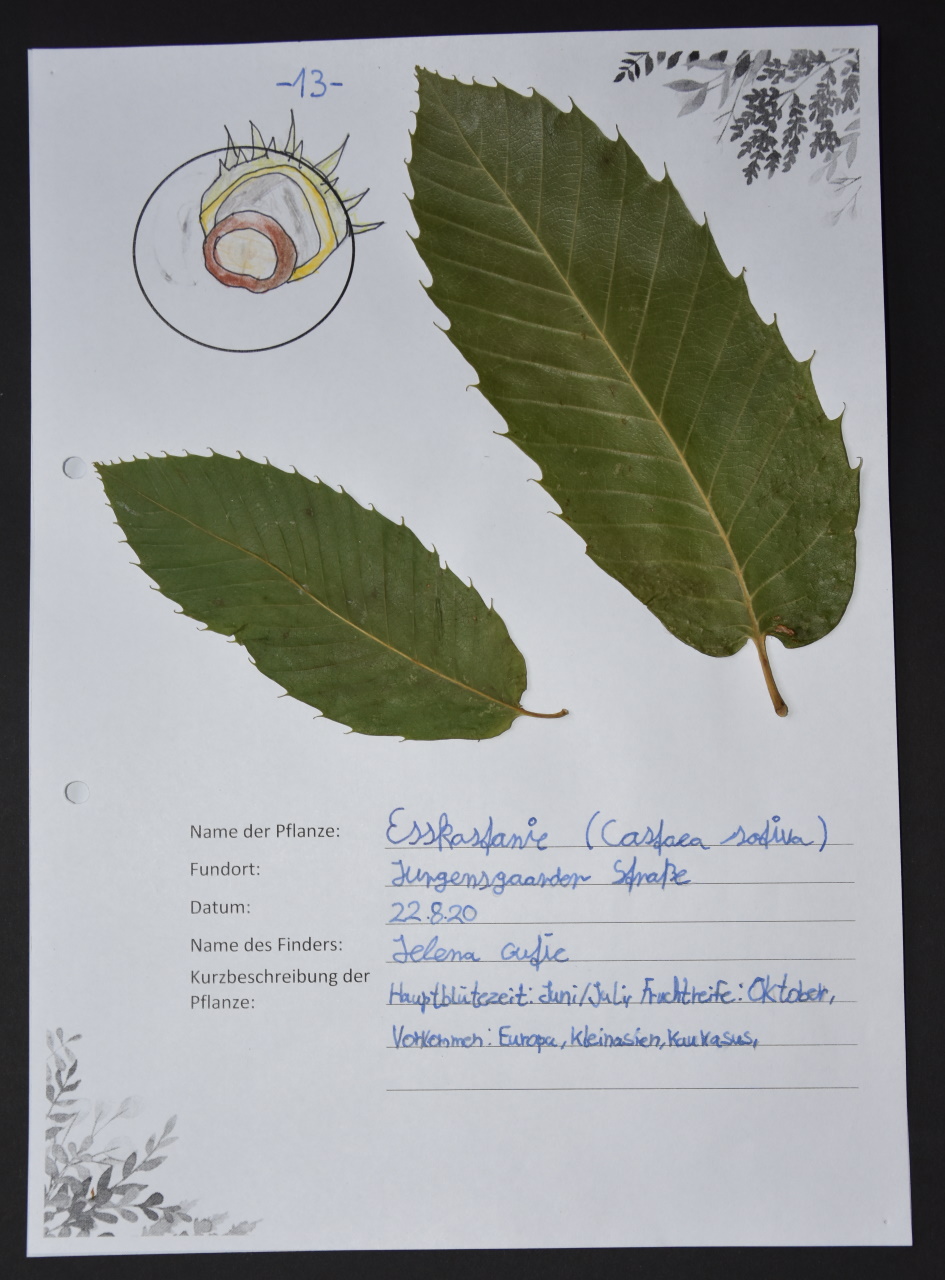 -13-
Name der Pflanze: Esskastanie (Castaea sativa)
Fundort: Jürgensgaarder Straße
Datum: 22.8.20
Name des Finders: Jelena
Kurzbeschreibung der Pflanze: Hauptblütezeit: Juni/Juli, Fruchtreife: Oktober,
Vorkommen: Europa, Kleinasien, Kaukasus,